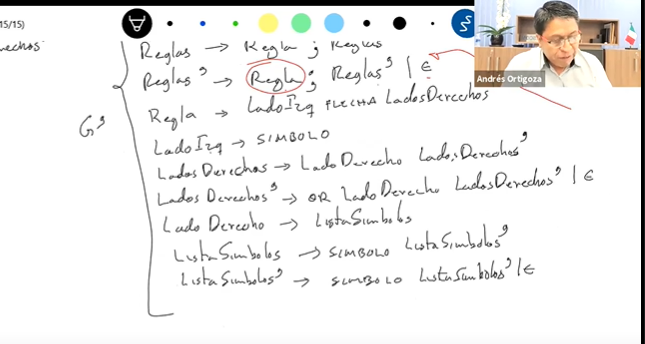 15/15)
rechos.
Reglas → Regla ; Reglas
Reglas' → Regla ; Reglas' | ϵ
Regla → LadoIzq FLECHA LadosDerechos
G'
LadoIzq → SIMBOLO
LadosDerechos → LadoDerecho LadosDerechos'
LadosDerechos' → OR LadoDerecho LadosDerechos' | ϵ
LadoDerecho → ListaSimbolos
ListaSimbolos → SIMBOLO ListaSimbolos'
ListaSimbolos' → SIMBOLO ListaSimbolos' | ϵ
Andrés Ortigoza